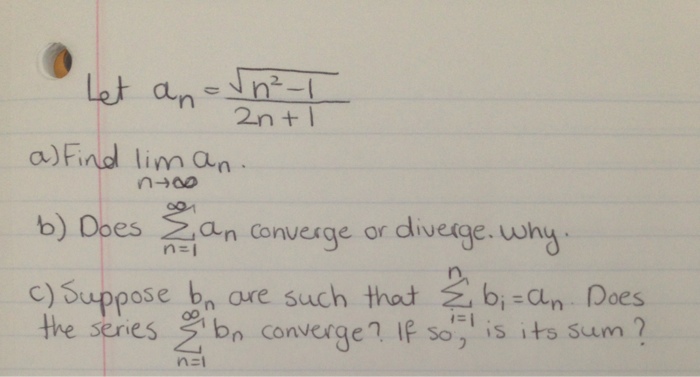 Let aₙ = √(n²-1) / (2n+1)
a) Find lim n→∞ aₙ.
b) Does ∞ Σ n=1 aₙ converge or diverge. why.
c) Suppose bₙ are such that n Σ i=1 bᵢ = aₙ. Does
the series ∞ Σ n=1 bₙ converge? If so, is its sum?